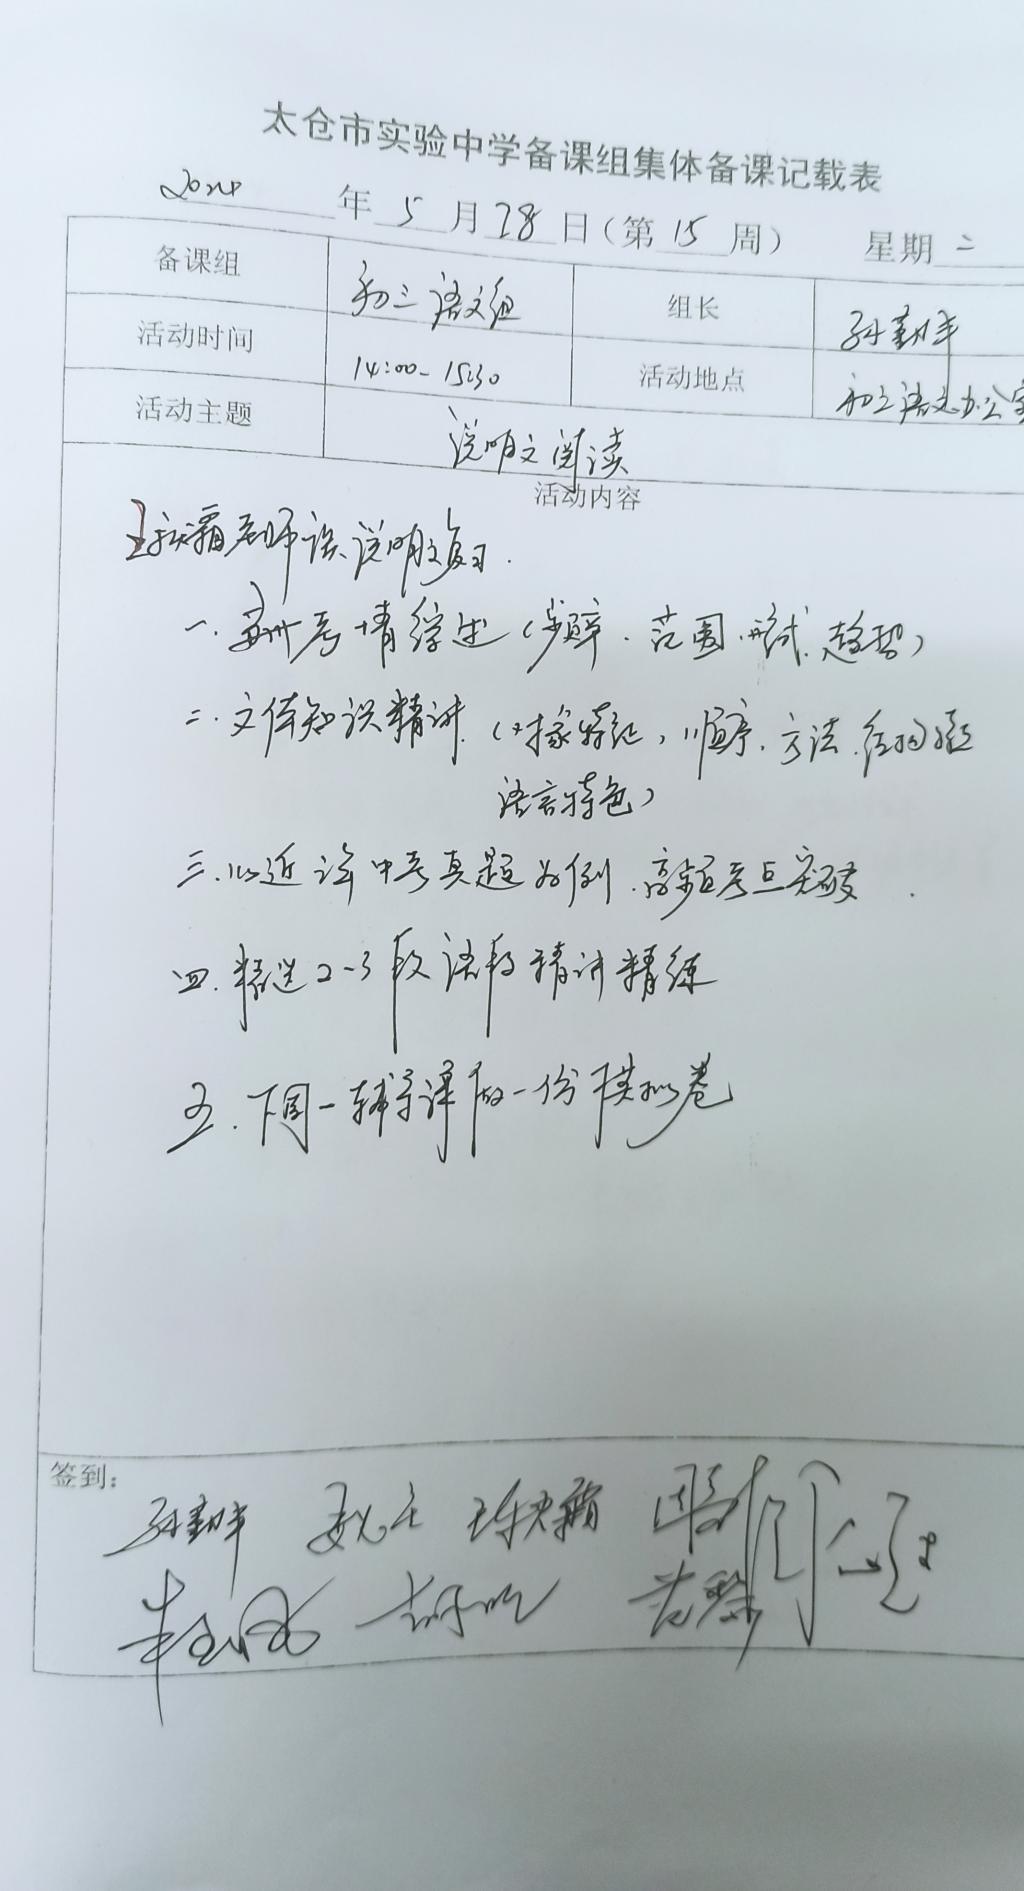 太仓市实验中学备课组集体备课记载表
2024年5月28日(第15周) 星期二
备课组 初三语文组 组长 孙勤丰
活动时间 14:00-15:30 活动地点 初三语文办公室
活动主题 说明文阅读
活动内容
霜老师谈说明文复习.
一.苏州考情综述(步骤.范围.形式.趋势)
二.文体知识精讲.(对象特征,顺序.方法.结构
语言特色)
三.以近年中考真题为例.高频考点突破.
四.精选2-3段语段精讲精练
五.下周一辅导课做一份模拟卷
签到:
孙勤丰